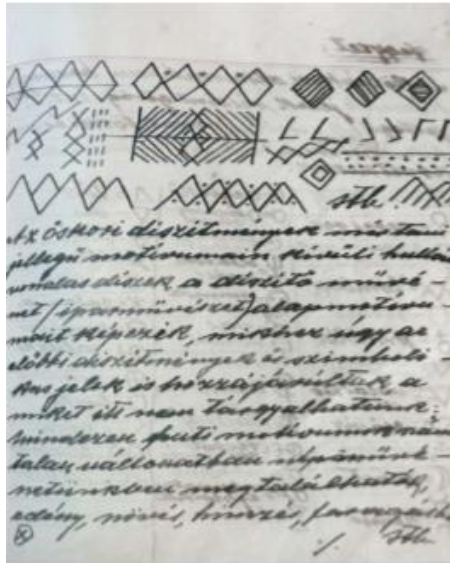 stb.
Az őskori díszítmények mértani
jellegű motívumain kívüli hullám
vonalas díszek a díszítő művé-
szet (iparművészet) alapmotívu-
mait képezik, mikhez úgy az
előbbi díszítmények és szimboli-
kus jelek is hozzájárultak a
miket itt nem tárgyalhatunk;
mindezen fenti motívumok szám
talan változatban népművé-
netünkben megtalálhatók,
edény, szövés, hímzés, faragás
stb.